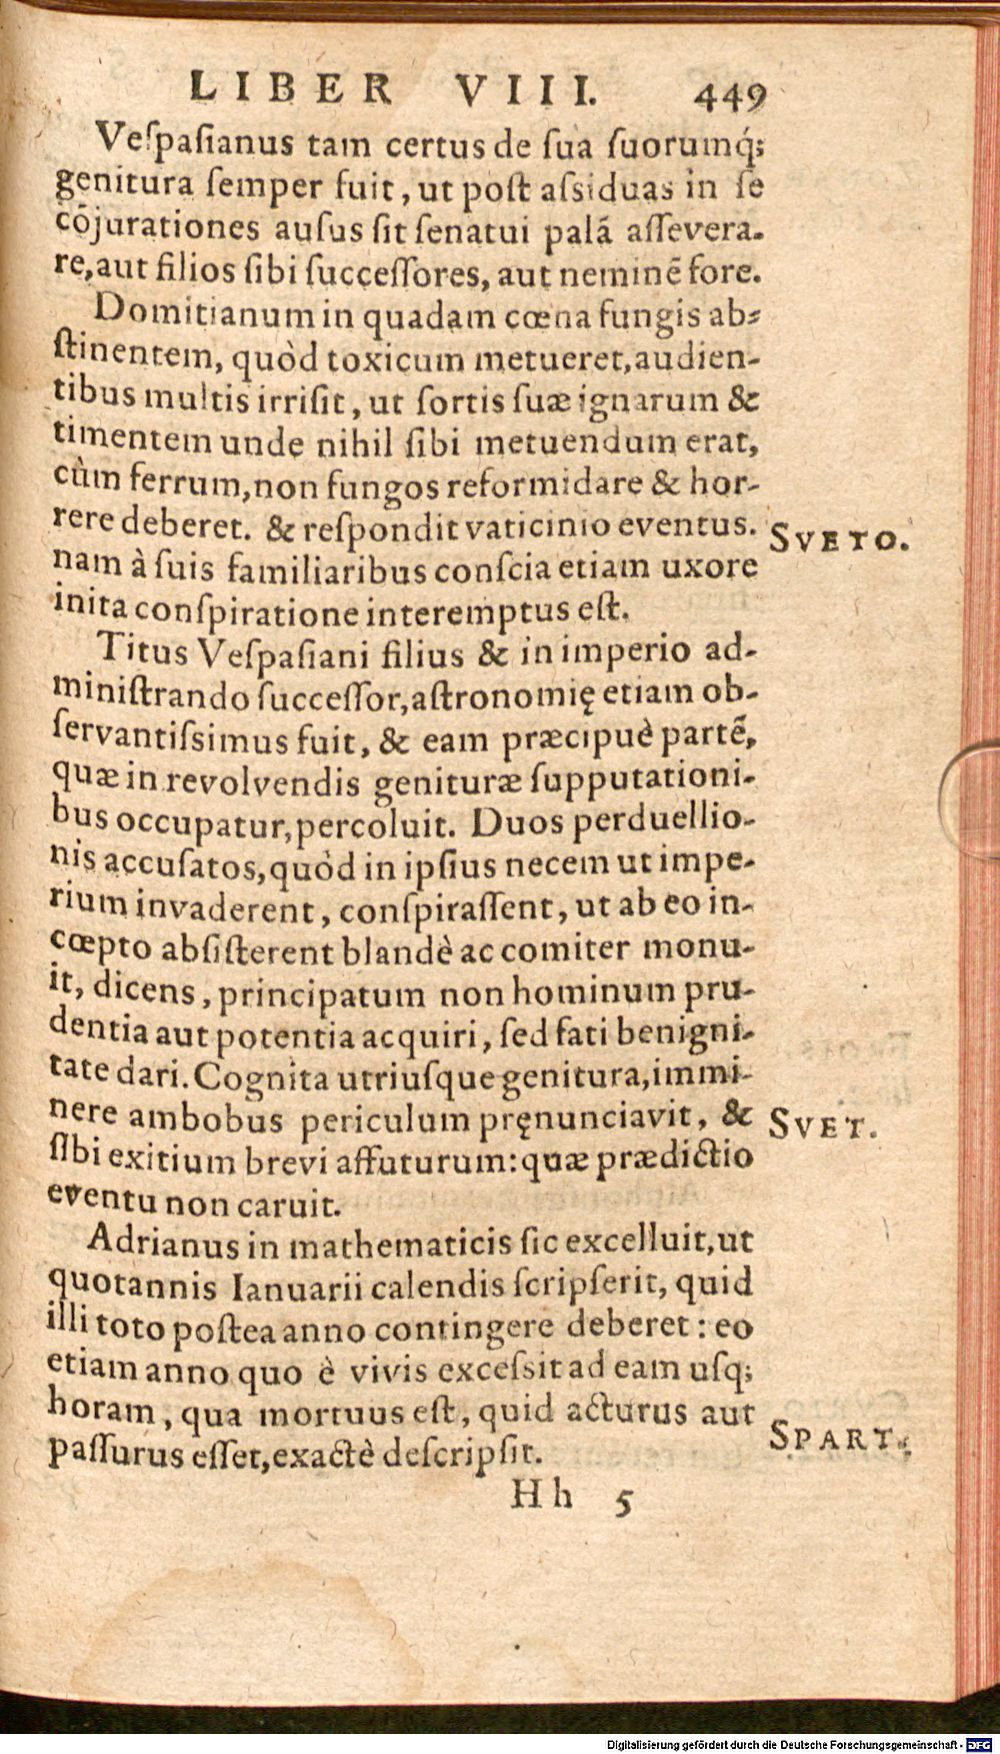 LIBER VIII. 449
Veſpaſianus tam certus de ſua ſuorumq́;
genitura ſemper fuit, ut poſt aſsiduas in ſe
cōjurationes auſus ſit ſenatui palā aſſevera-
re, aut filios ſibi ſucceſſores, aut neminē fore.
Domitianum in quadam cœna fungis ab-
ſtinentem, quòd toxicum metueret, audien-
tibus multis irriſit, ut ſortis ſuæ ignarum &
timentem unde nihil ſibi metuendum erat,
cùm ferrum, non fungos reformidare & hor-
rere deberet. & reſpondit vaticinio eventus. SVETO.
nam à ſuis familiaribus conſcia etiam uxore
inita conſpiratione interemptus eſt.
Titus Veſpaſiani filius & in imperio ad-
miniſtrando ſucceſſor, aſtronomię etiam ob-
ſervantiſsimus fuit, & eam præcipuè partē,
quæ in revolvendis genituræ ſupputationi-
bus occupatur, percoluit. Duos perduellio-
nis accuſatos, quòd in ipſius necem ut impe-
rium invaderent, conſpiraſſent, ut ab eo in-
cœpto abſiſterent blandè ac comiter monu-
it, dicens, principatum non hominum pru-
dentia aut potentia acquiri, ſed fati benigni-
tate dari. Cognita utriuſque genitura, immi-
nere ambobus periculum pręnunciavit, & SVET.
ſibi exitium brevi affuturum: quæ prædictio
eventu non caruit.
Adrianus in mathematicis ſic excelluit, ut
quotannis Ianuarii calendis ſcripſerit, quid
illi toto poſtea anno contingere deberet: eo
etiam anno quo è vivis exceſsit ad eam uſq;
horam, qua mortuus eſt, quid acturus aut
paſſurus eſſet, exactè deſcripſit. SPART.
Hh 5
Digitalisierung gefördert durch die Deutsche Forschungsgemeinschaft - DFG